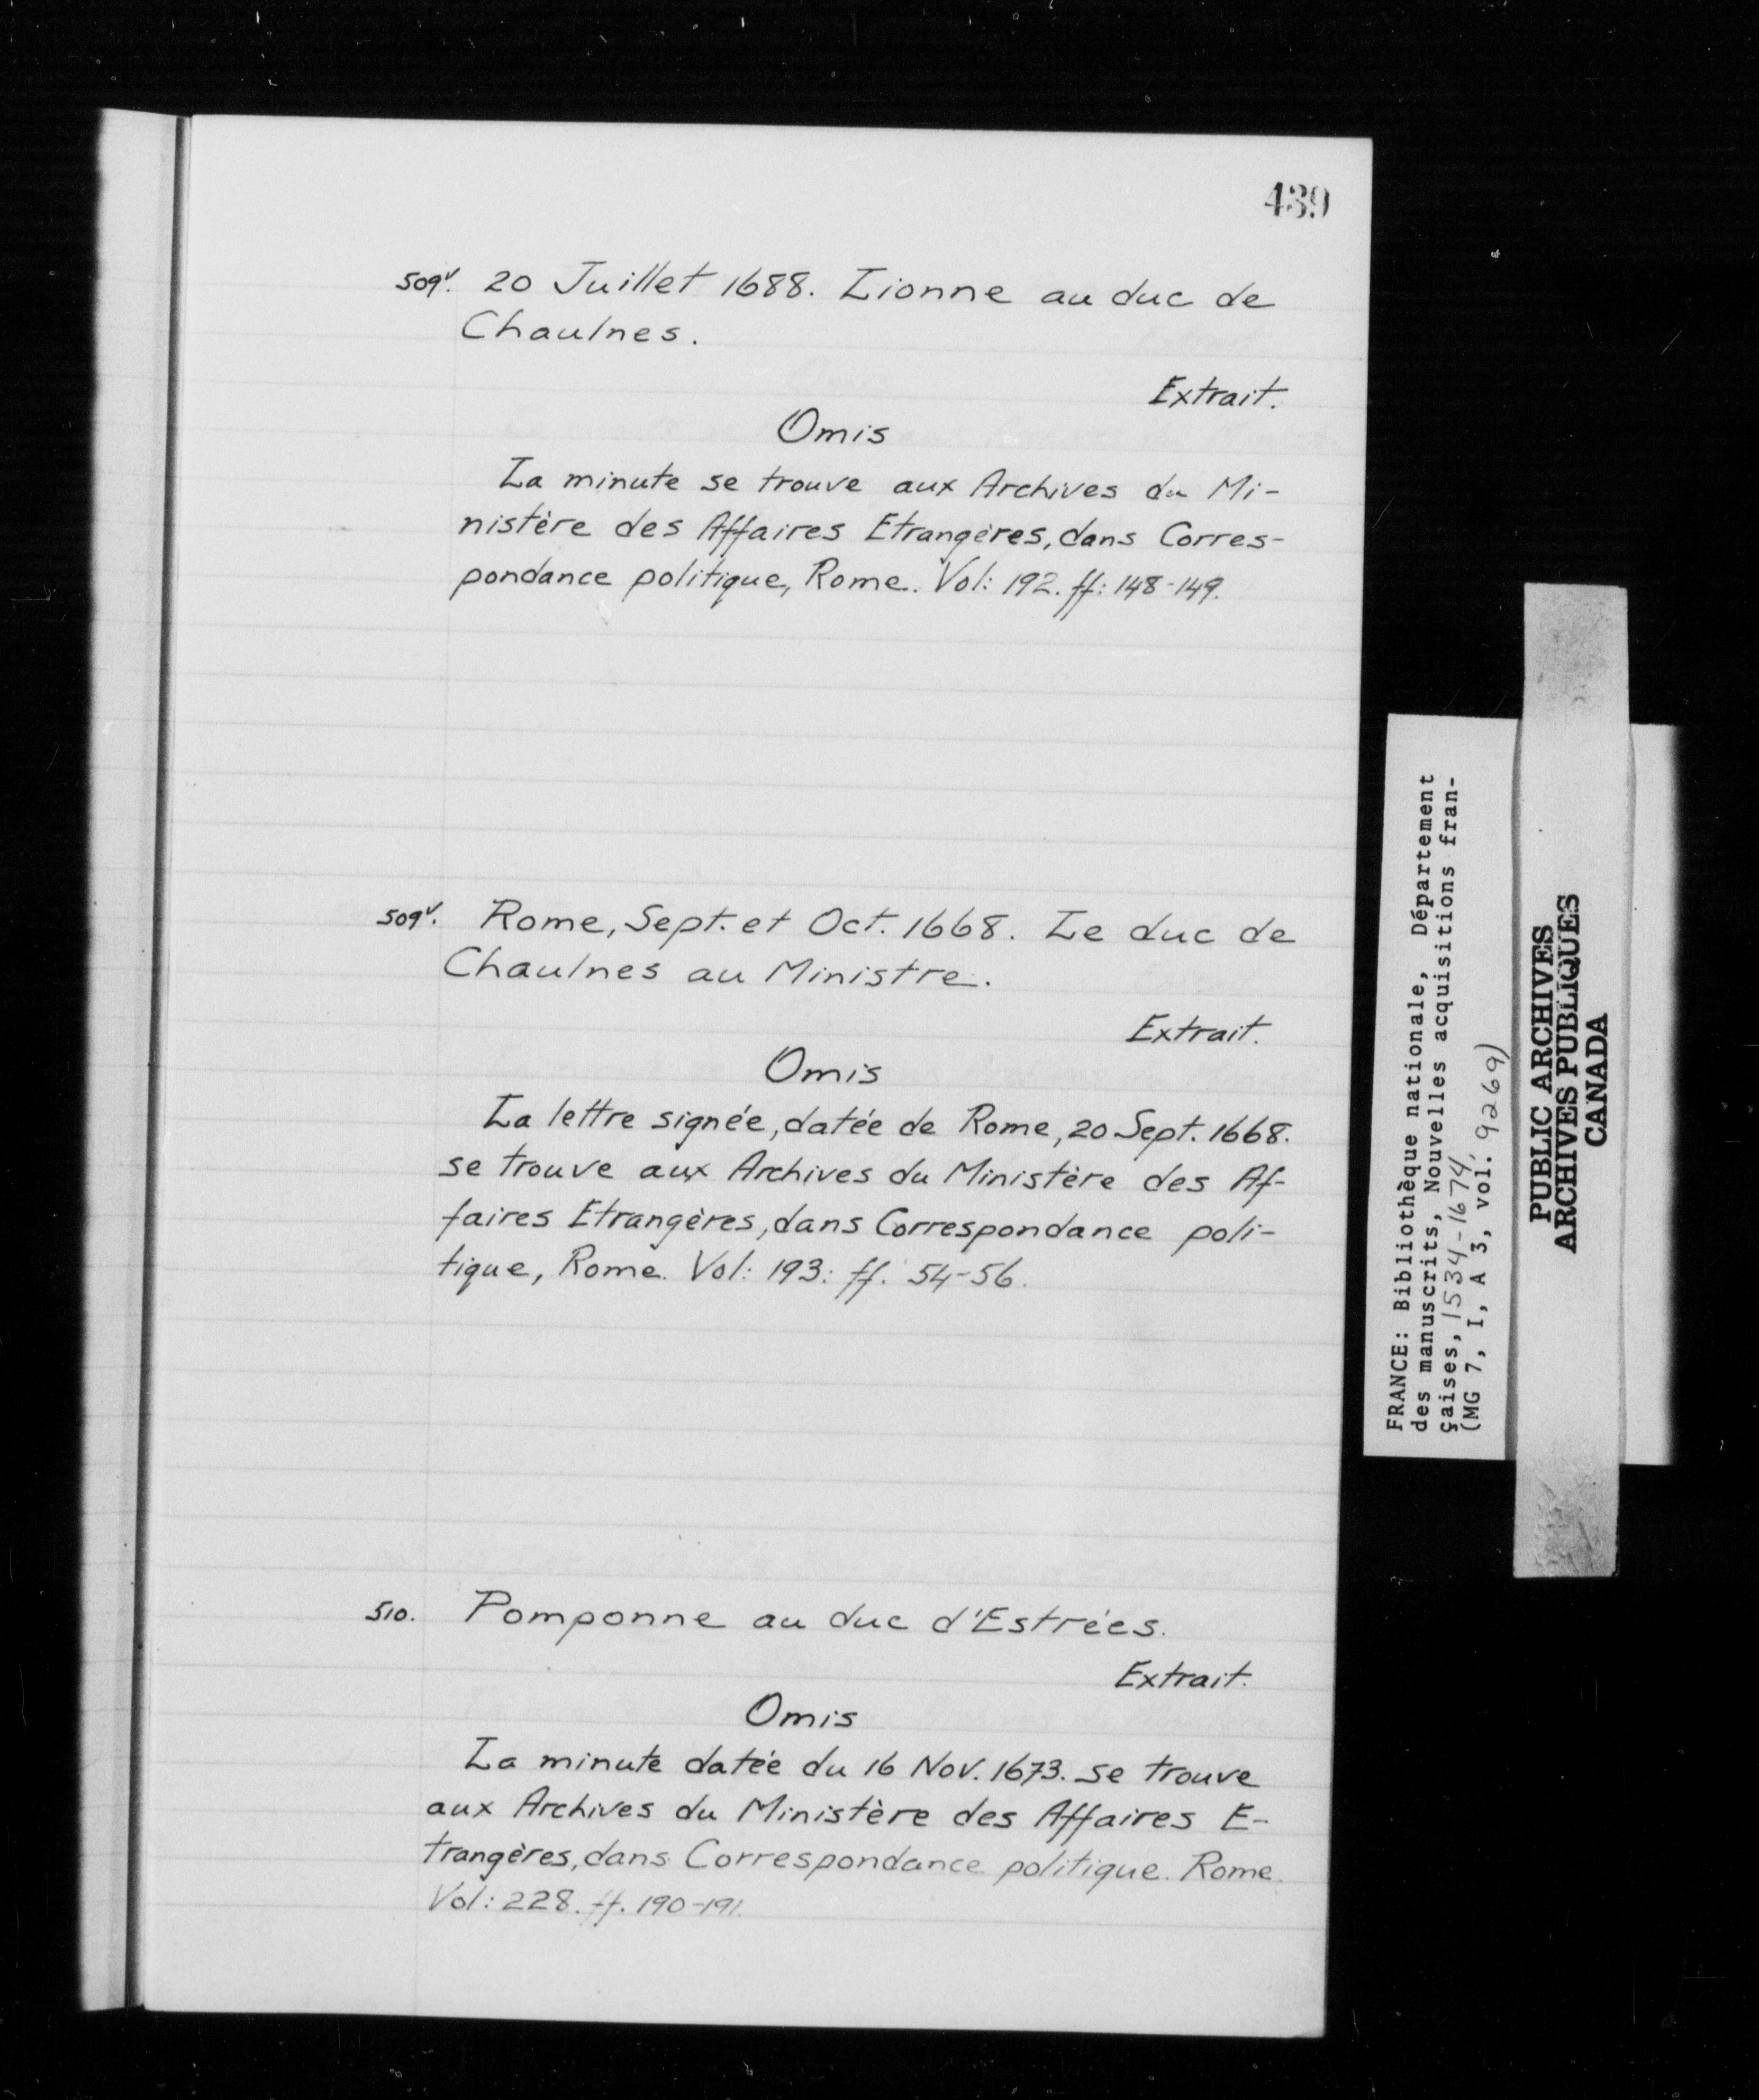 439
509v. 20 Juillet 1688. Lionne au duc de
Chaulnes.
Extrait.
Omis
La minute se trouve aux Archives du Mi-
nistère des Affaires Etrangères, dans Corres-
pondance politique, Rome. Vol: 192. ff: 148-149.
509v. Rome, Sept. et Oct. 1668. Le duc de
Chaulnes au Ministre.
Extrait.
Omis
La lettre signée, datée de Rome, 20 Sept. 1668.
se trouve aux Archives du Ministère des Af-
faires Etrangères, dans Correspondance poli-
tique, Rome. Vol: 193: ff. 54-56.
510. Pomponne au duc d'Estrées.
Extrait.
Omis
La minute datée du 16 Nov. 1673. se trouve
aux Archives du Ministère des Affaires E-
trangères, dans Correspondance politique. Rome.
Vol: 228. ff. 190-191.
FRANCE: Bibliothèque nationale, Département
des manuscrits, Nouvelles acquisitions fran-
çaises, 1534-1674,
(MG 7, I, A 3, vol. 9269)
PUBLIC ARCHIVES
ARCHIVES PUBLIQUES
CANADA